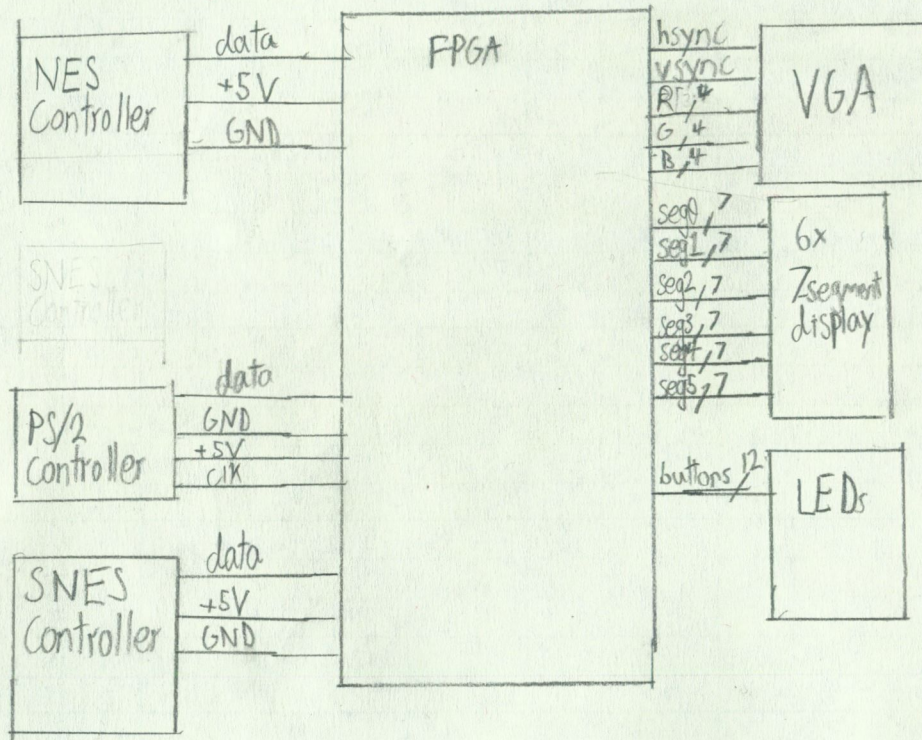 NES
Controller
data
+5V
GND
SNES
Controller
PS/2
Controller
data
GND
+5V
clk
SNES
Controller
data
+5V
GND
FPGA
hsync
vsync
R, 4
G, 4
B, 4
VGA
seg0, 7
seg1, 7
seg2, 7
seg3, 7
seg4, 7
seg5, 7
6x
7-segment
display
buttons, 12
LEDs